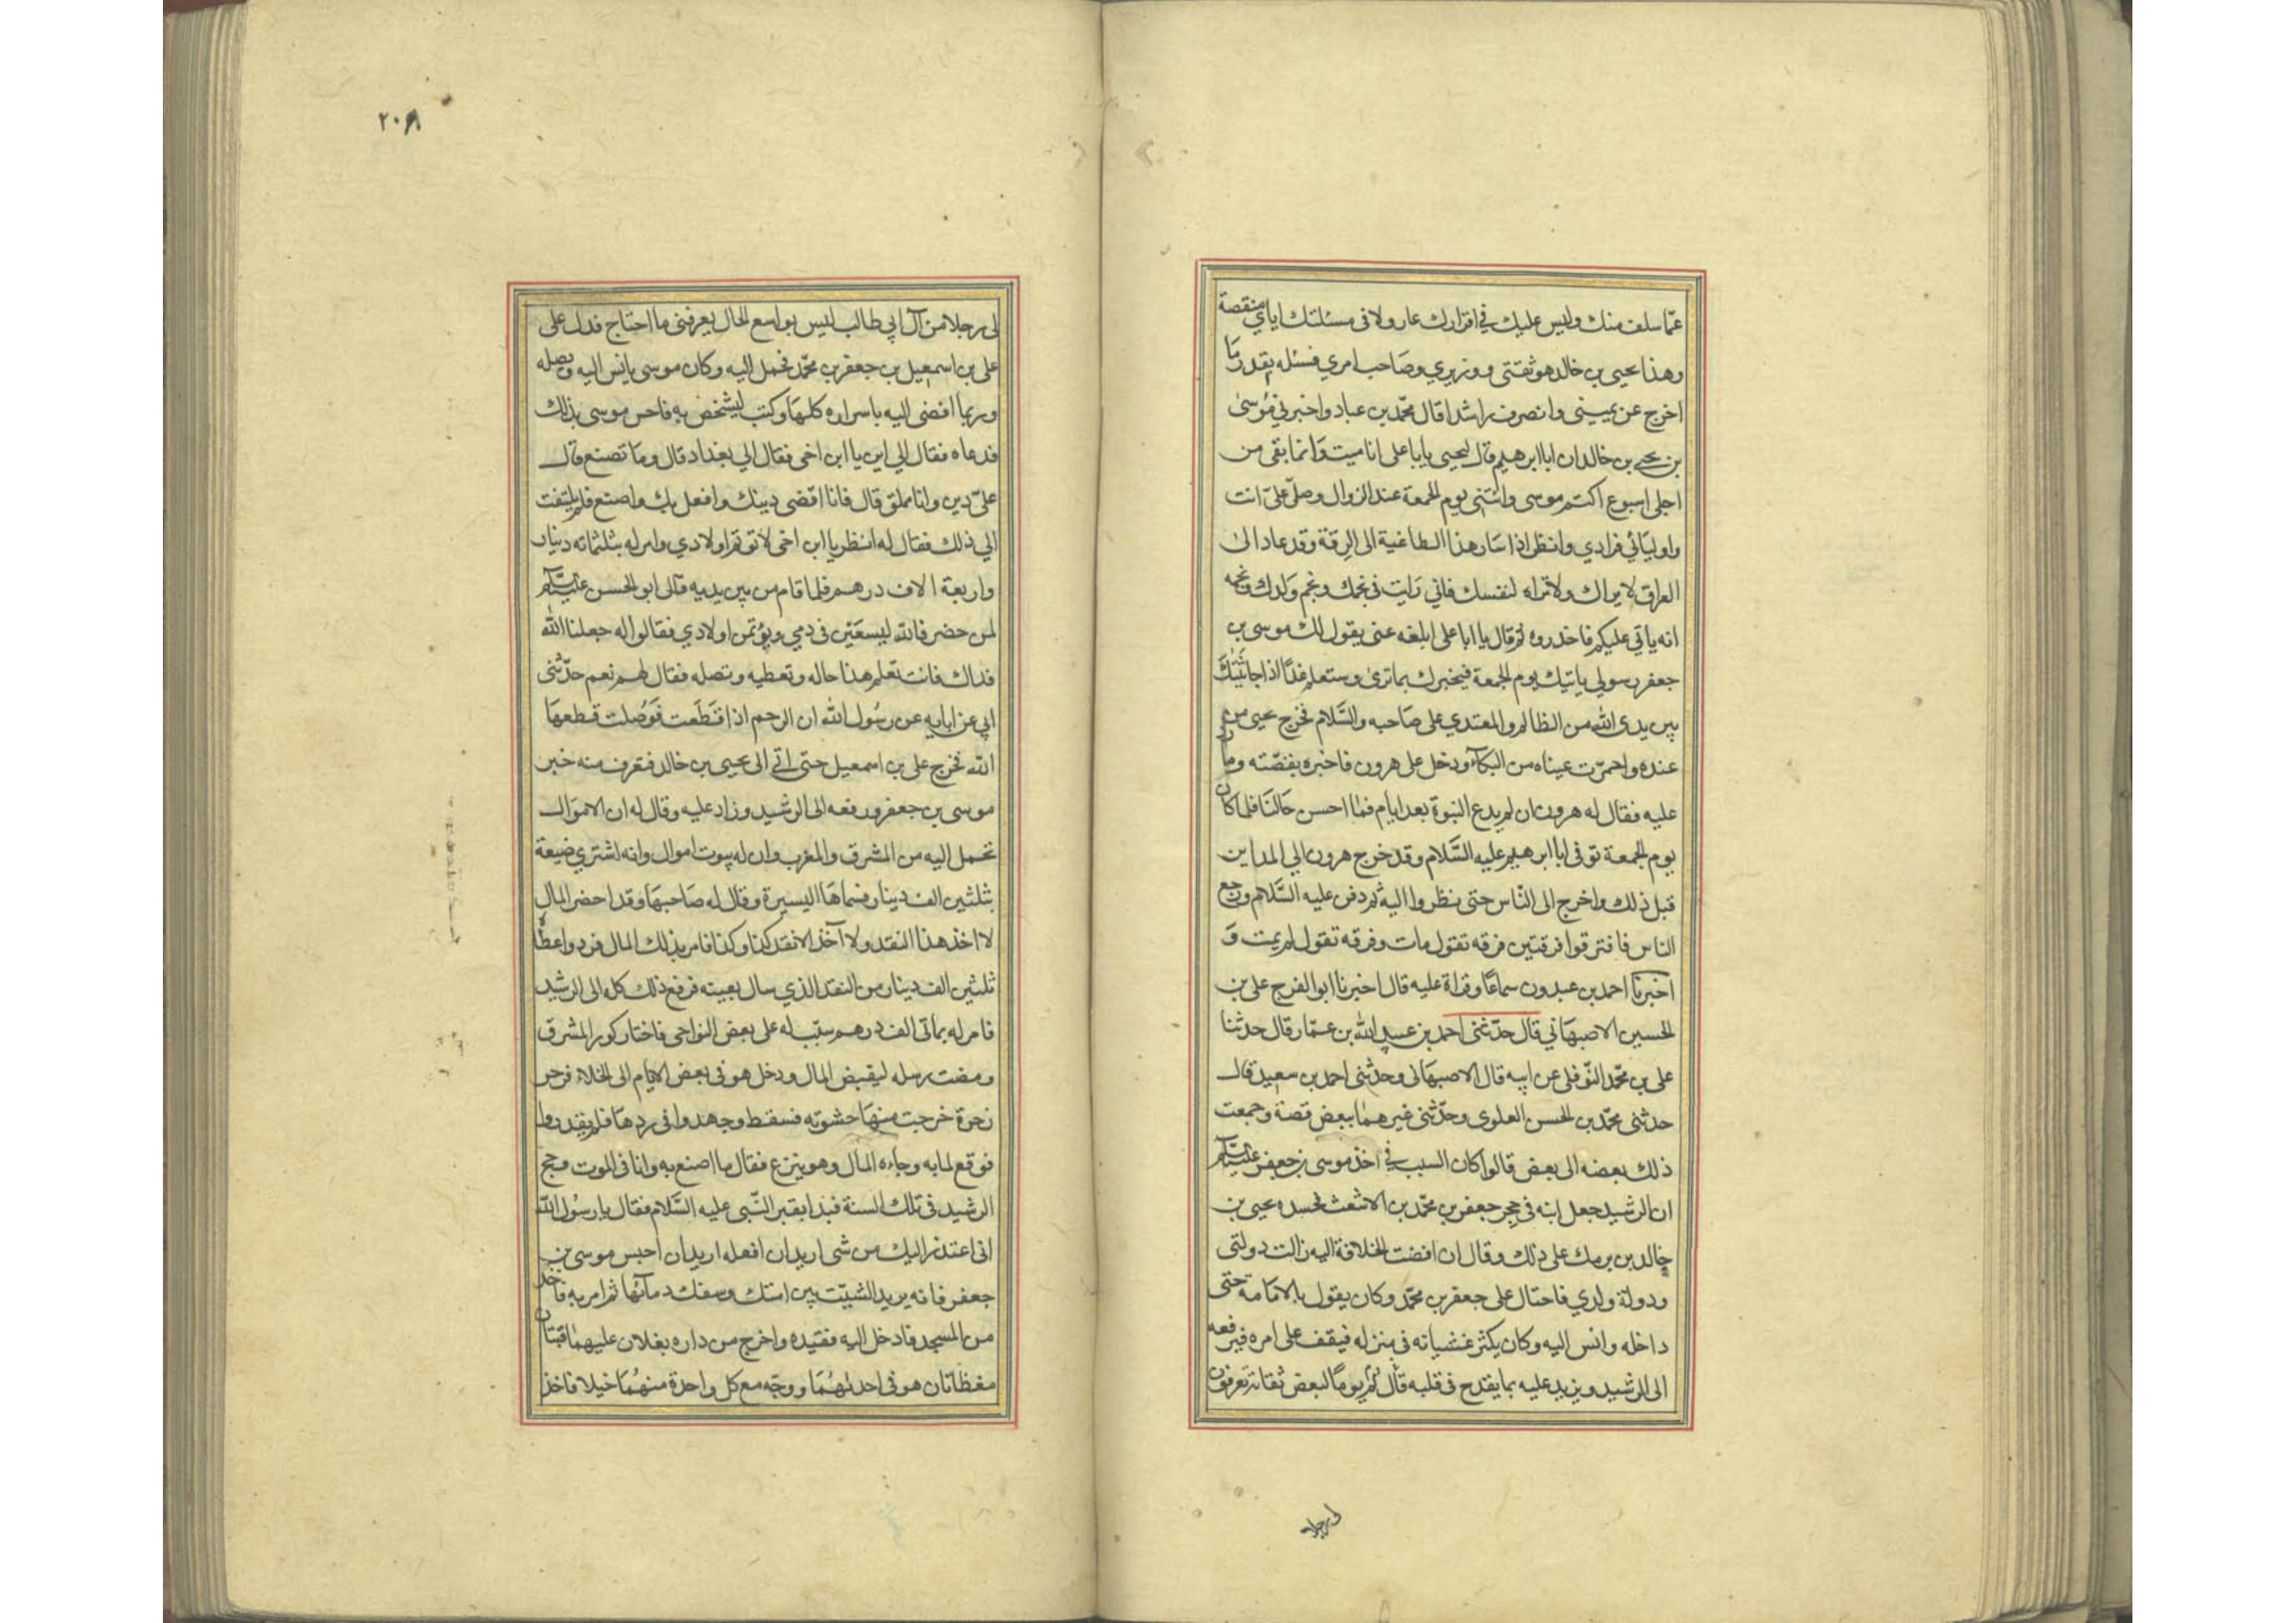 عمّا سلف منك وليس عليك في اقرارك عار ولا في مسئلتك اياي منقصة
وهذا يحيى بن خالد هو ثقتى ووزيري وصاحب امري فسئله بقدر ما
اخرج عن يمينى وانصرف راشدا قال محمّد بن عباد واخبرني مُوسىٰ
بن يحيى بن خالد ان ابا ابرهيم قال ليحيى يابا على انا ميت وَانما بقى من
اجلى اسبوع اكتم موسى وائتنى يوم الجمعة عند الزوال وصلّ علىّ انت
واوليائي فرادي وانظر اذا سَار هذا الطاغية الى الرقة وقد عاد الى
العراق لا يراك ولا تراه لنفسك فاني رَايت في نجمك ونجم وَلدك ونجمه
انه ياتي عليكم فاحذروه ثم قال يا ابا على ابلغه عنى يقول لك موسى بن
جعفر رسولي ياتيك يوم الجمعة فيخبرك بما ترىٰ وستعلم غدًا اذا جاثيتك
بين يدى الله من الظالم والمعتدي على صَاحبه والسَّلام فخرج يحيى من
عنده واحمرّت عيناه من البكاء ودخل على هرون فاخبره بقصّته وما رد
عليه فقال له هرون ان لم يدع النبوة بعد ايام فما احسن حَالنَا فلما كان
يوم الجمعة توفى ابا ابرهيم عليه السَّلام وقد خرج هرون الي المداين
قبل ذلك واخرج الى النّاس حتى نظروا اليه ثم دفن عليه السَّلام ورجع
الناس فافترقوا فرقتين فرقه تقول مات وفرقه تقول لم يمت وَ
اخبرنا احمد بن عبدون سماعًا وقراة عليه قال اخبرنا ابو الفرج على بن
الحسين الاصبهَاني قال حدّثنى احمد بن عبيد الله بن عمّار قال حدثنا
على بن محمّد النّوفلى عن ابيه قال الاصبهَانى وحدثنى احمد بن سعيد قال
حدثنى محمّد بن الحسن العلوي وحدّثنى غيرهمَا ببعض قصة وجمعت
ذلك بعضه الى بعض قالوا كان السبب في اخذ موسى بن جعفر عليه السّلم
ان الرشيد جعل ابنه فى حجر جعفر بن محمّد بن الاشعث فحسده يحيى بن
خالد بن برمك على ذلك وقال ان افضت الخلافة اليه زالت دولتى
ودولة ولدي فاحتال على جعفر بن محمّد وكان يقول بالامَامة حتى
داخله وانس اليه وكان يكثر غشيانه فى منزله فيقف على امره فيرفعه
الى الرشيد ويزيد عليه بما يقدح فى قلبه قال ثم يومًا لبعض ثقاته تعرفون
لى رجلا
٢٠٨
لى رجلا من آل ابي طالب ليس بواسع الحال يعرفنى ما احتاج فدل على
على بن اسمعيل بن جعفر بن محمّد فحمل اليه وكان موسى يانس اليه ويصله
وربما افضى اليه باسراره كلهَا وكتب ليُشخص به فاحس موسى بذلك
فدعاه فقال الي اين يا ابن اخى فقال الي بغداد قال وما تصنع قال
علىّ دين وانا مملق قال فانا اقضى دينك وافعل بك واصنع فلم يلتفت
الي ذلك فقال له انظر يا ابن اخى لا توتم اولادي وامر له بثلثمائه دينار
واربعة الاف درهم فلما قام من بين يديه قال ابو الحسن عليه السّلم
لمن حضر فالله ليسعَيَن فى دمي ويؤتمن اولادي فقالوا له جعلنا الله
فداك فانت تعلم هذا حاله وتعطيه وتصله فقال لهم نعم حدّثنى
ابي عن ابايه عن رسُول الله ان الرحم اذا قَطَعت فَوُصلت قطعهَا
الله فخرج على بن اسمعيل حتى اتى الى يحيى بن خالد فتعرف منه خبر
موسى بن جعفر ورفعه الى الرشيد وزاد عليه وقال له ان الاموال
تحمل اليه من المشرق والمغرب وان له بيوت اموال وانه اشتري ضيعة
بثلثين الف دينار فسماهَا اليسيرة وقال له صَاحبهَا وقد احضر المال
لا اخذ هذا النقد ولا آخذ الا نقد كذا وكذا فامر بذلك المال فرد واعطاه
ثلثين الف دينار من النقد الذي سال بعينه فرفع ذلك كله الى الرشيد
فامر له بمائى الف درهم سبّب له على بعض النواحى فاختار كور المشرق
ومضت رسله ليقبض المال ودخل هو فى بعض الايام الى الخلاء فزحر
زحرة خرجت منهَا حشوته فسقط وجهدوا فى ردهَا فلم يقدروا
فوقع لما به وجاءه المال وهو ينزع فقال ما اصنع به وانا فى الموت وحج
الرشيد فى تلك السنة فبدا بقبر النّبى عليه السَّلام فقال يا رسُول الله
انى اعتذر اليك من شى اريد ان افعله اريد ان احبس موسى بن
جعفر فانه يريد الشتيّت بين امتك وسفك دمآئها ثم امر به فاخذ
من المسجد فادخل اليه فقيده واخرج من داره بغلان عليهما قبتان
مغطاتان هو فى احدٰهُمَا ووجّه مع كل واحدة منهُمَا خيلا فاخذ